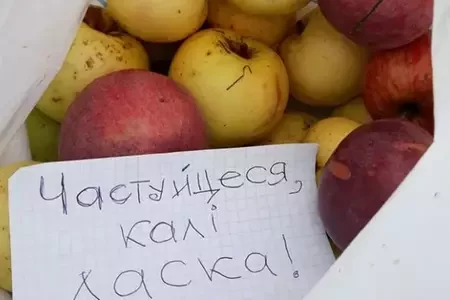 Частуйцеся,
калі
ласка!